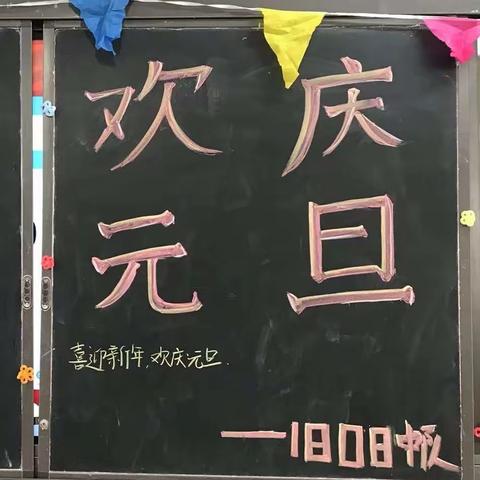 欢庆
元旦
喜迎新年,欢庆元旦.
—1808中队